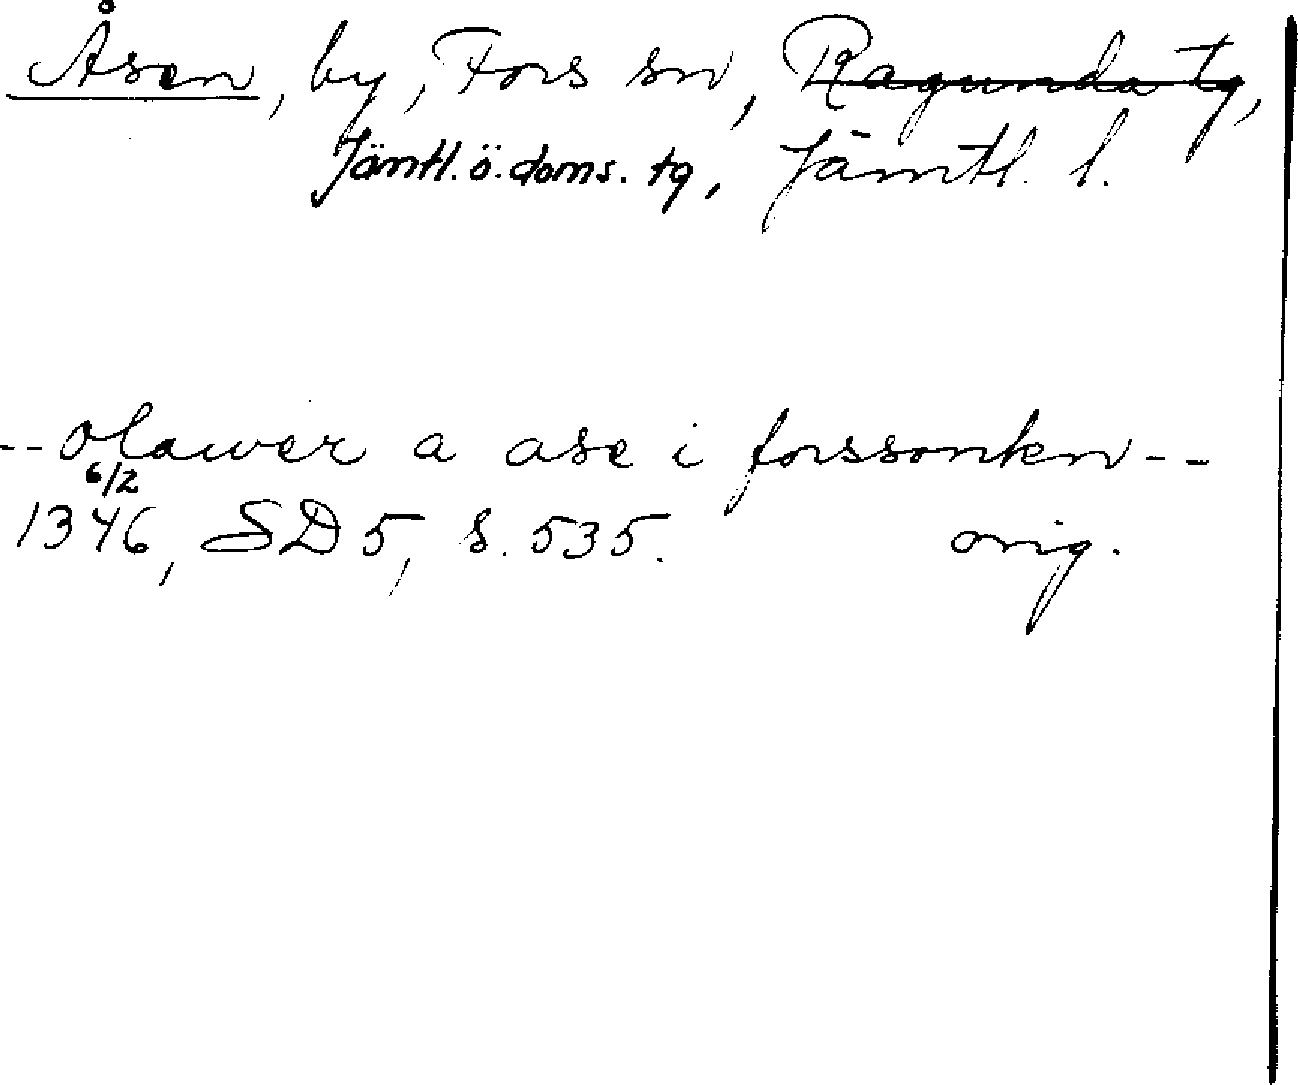 Åsen, by, Fors sn, Ragunda tg,
Jämtl. ö. doms. tg, Jämtl. l.
-- olawer a ase i forssonken --
6/2
1346, SD 5, s. 535. orig.